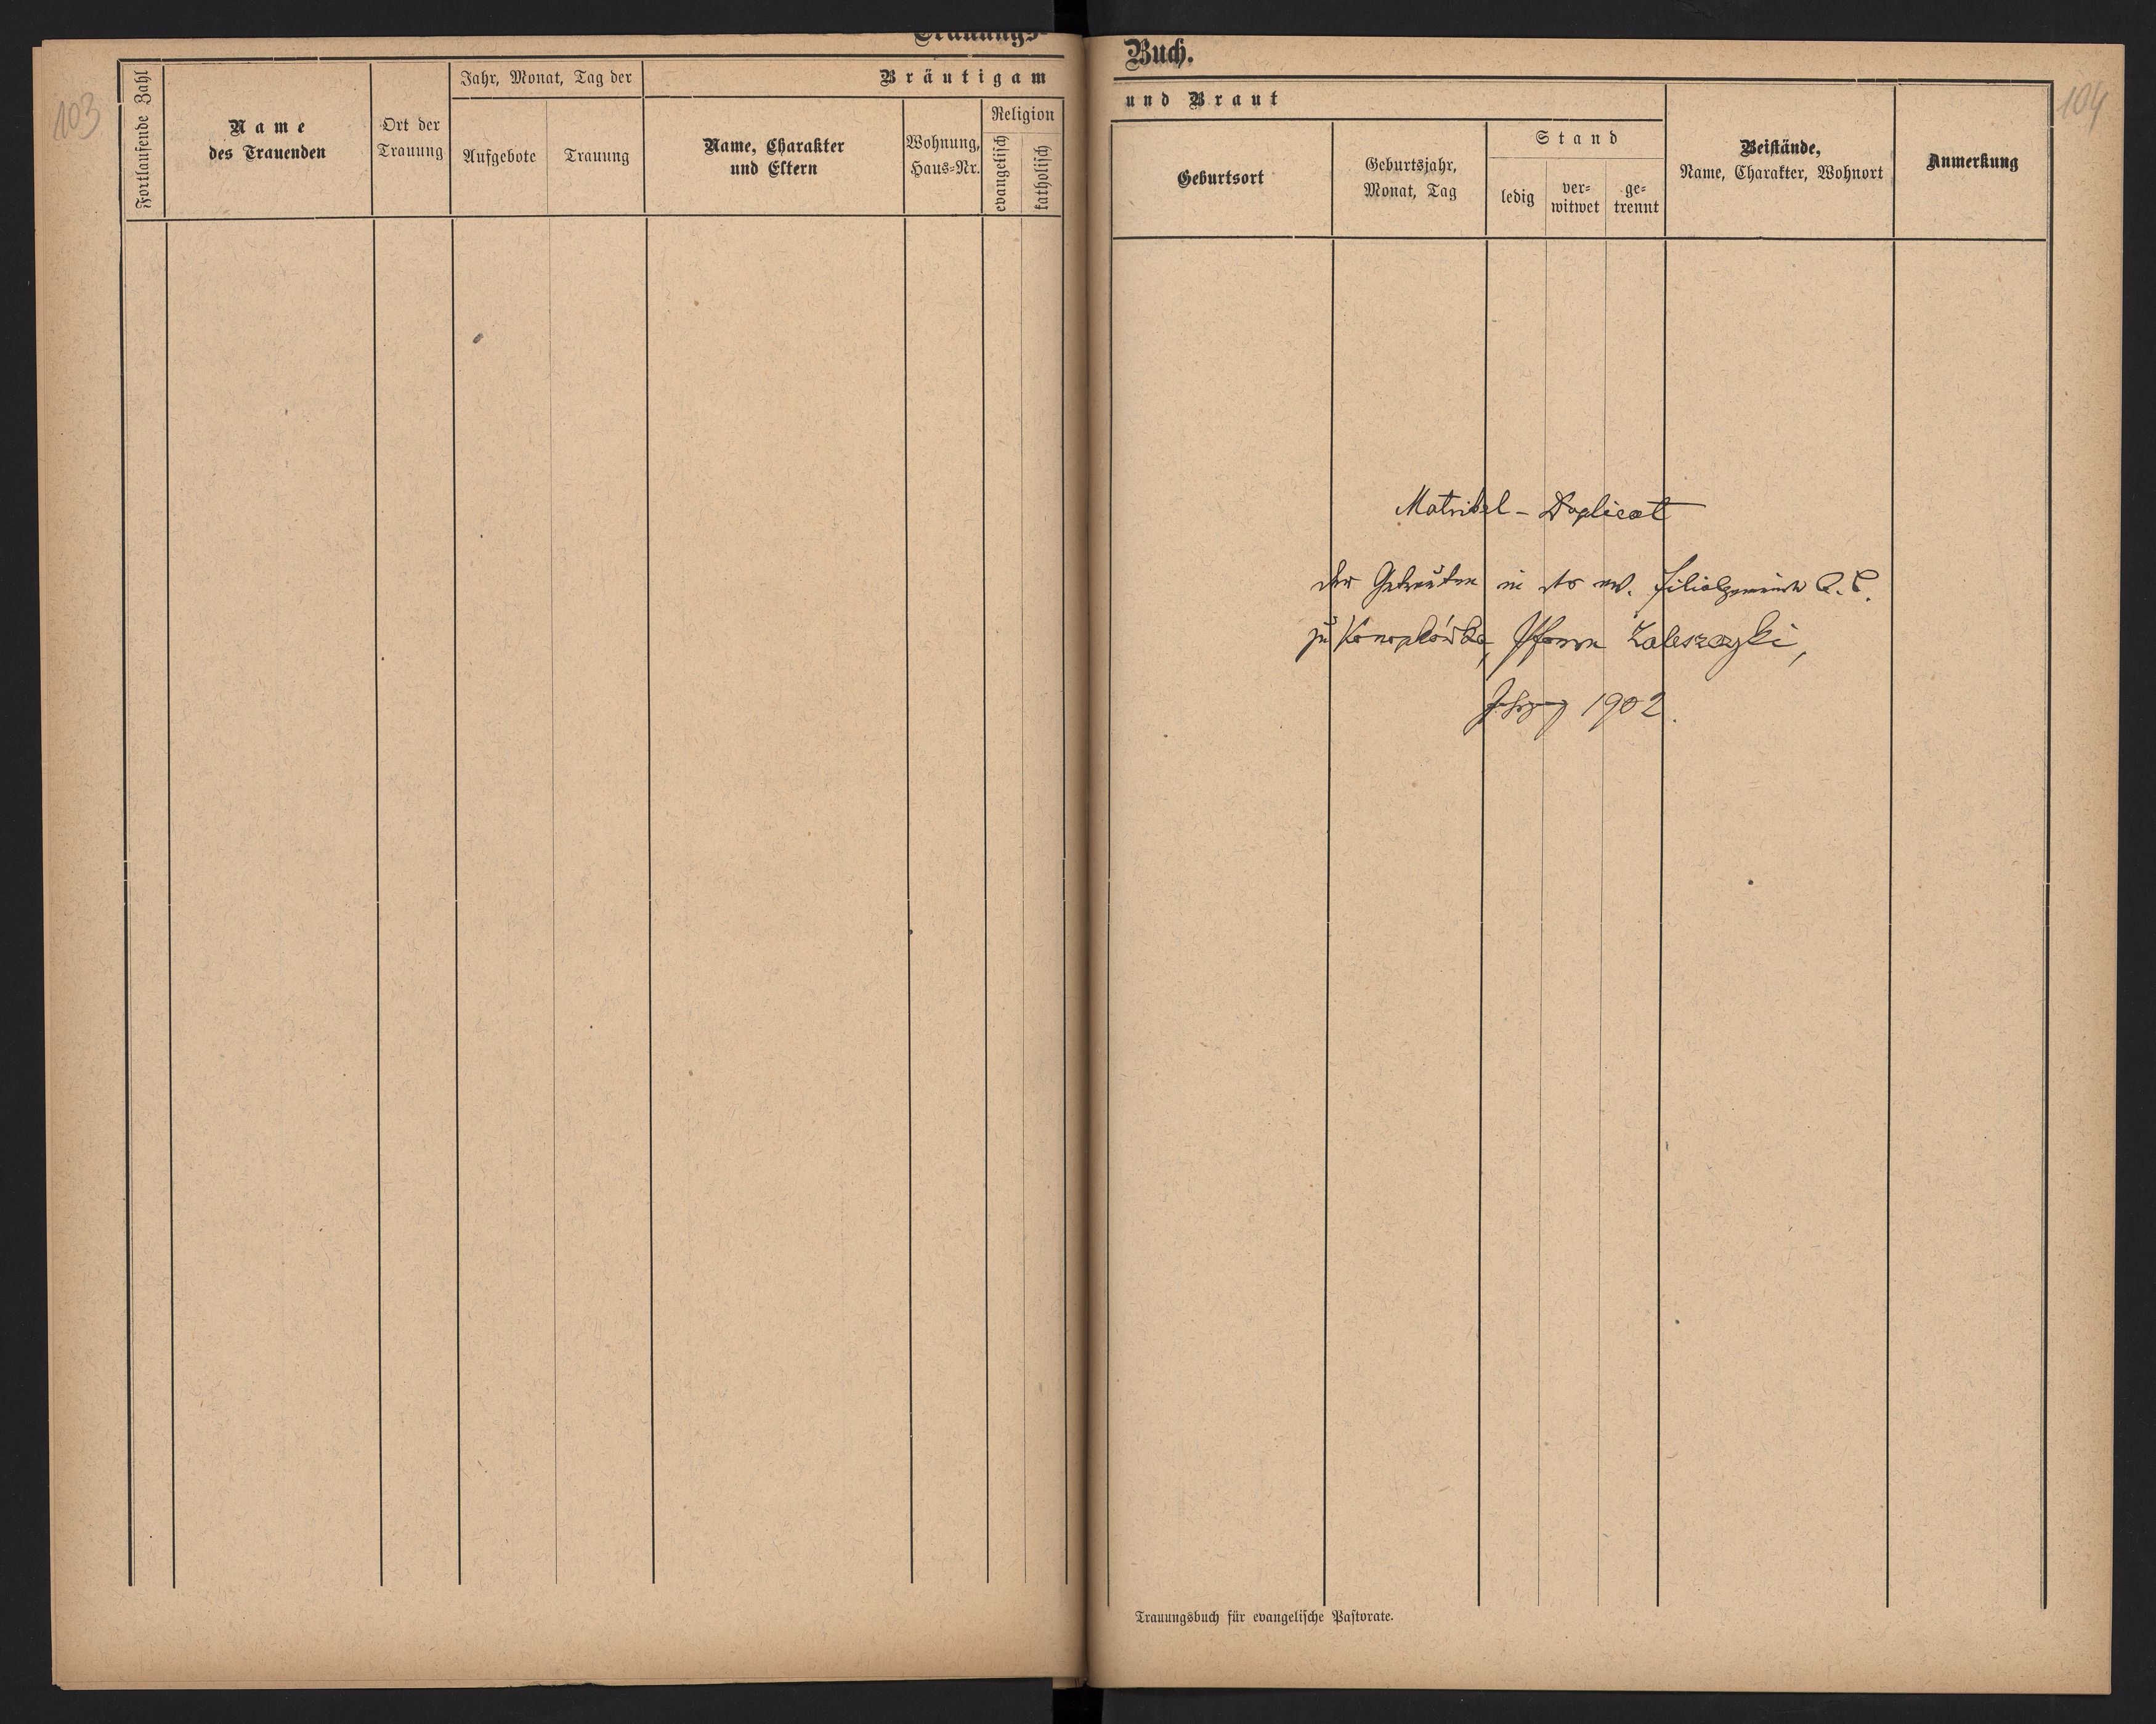 103
Trauungs-
Fortlaufende Zahl
Name
des Trauenden
Ort der
Trauung
Jahr, Monat, Tag der
Aufgebote
Trauung
Bräutigam
Name, Charakter
und Eltern
Wohnung,
Haus-Nr.
Religion
evangelisch
katholisch
Buch.
104
und Braut
Geburtsort
Geburtsjahr,
Monat, Tag
Stand
ledig
ver-
witwet
ge-
trennt
Beistände,
Name, Charakter, Wohnort
Anmerkung
Matrikel - Duplicat
der Getrauten in der ev. Filialgemeinde A. C.
zu Konopkówka, Pfarre Zaleszczyki,
1902.
Trauungsbuch für evangelische Pastorate.